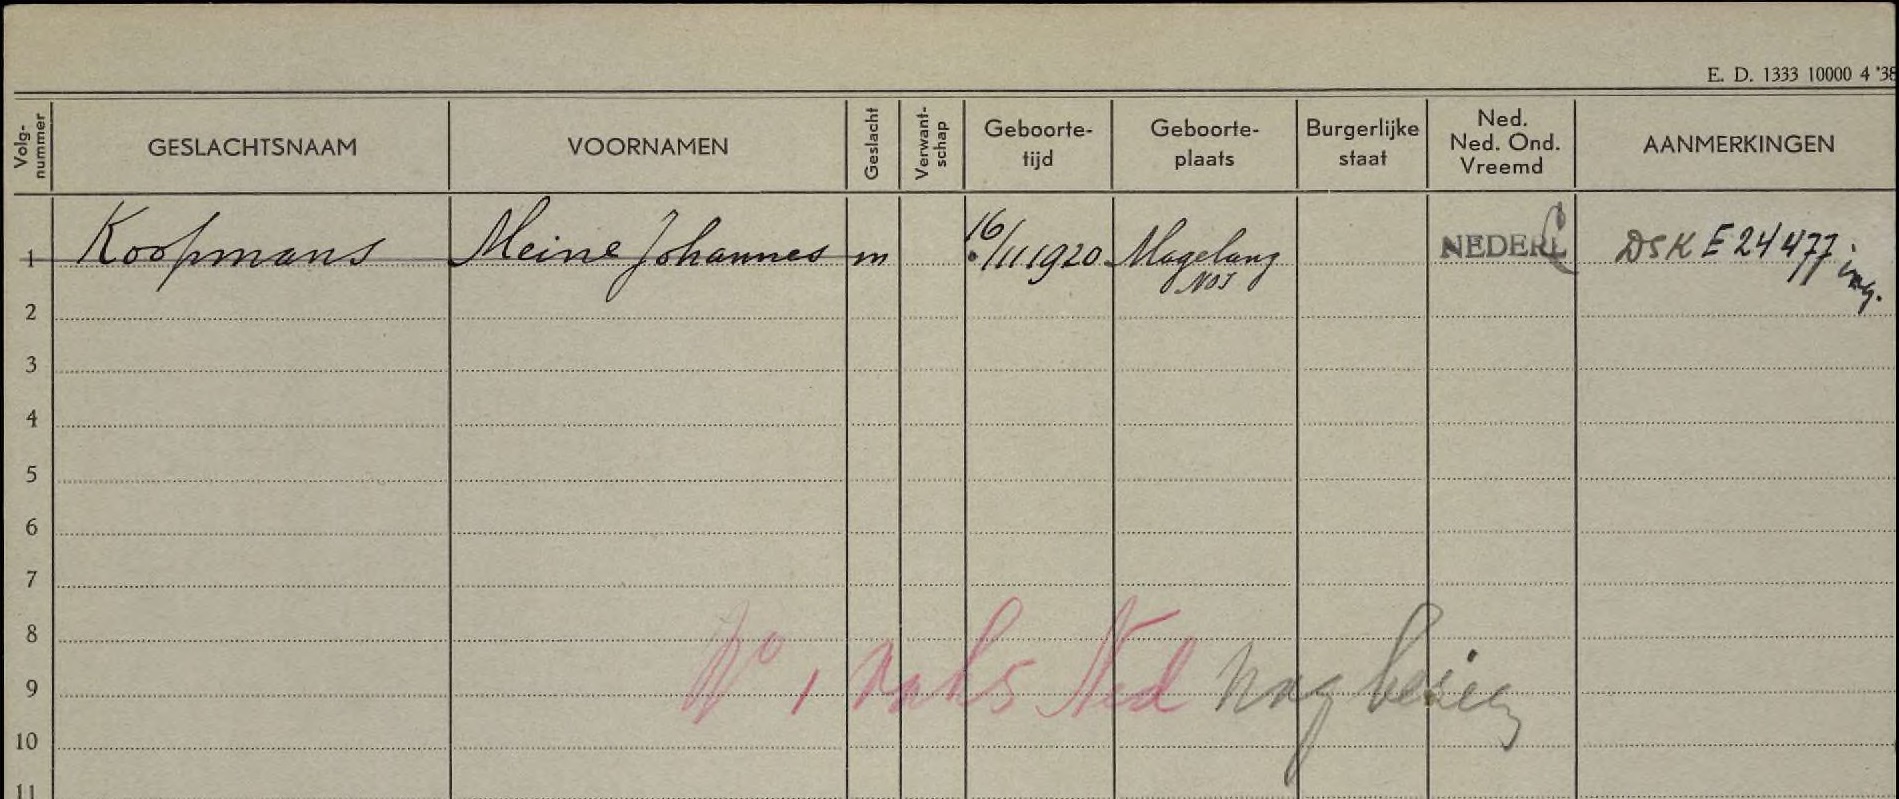 E. D. 1333 10000 4 '38
Volg-nummer GESLACHTSNAAM VOORNAMEN Geslacht Verwant-schap Geboorte-tijd Geboorte-plaats Burgerlijke staat Ned. Ned. Ond. Vreemd AANMERKINGEN
1 Koopmans Meine Johannes m 16/11 1920 Magelang NOI NEDERL DSK E 24477 ing.
2
3
4
5
6
7
8
9 No 1 Ned nog
10
11